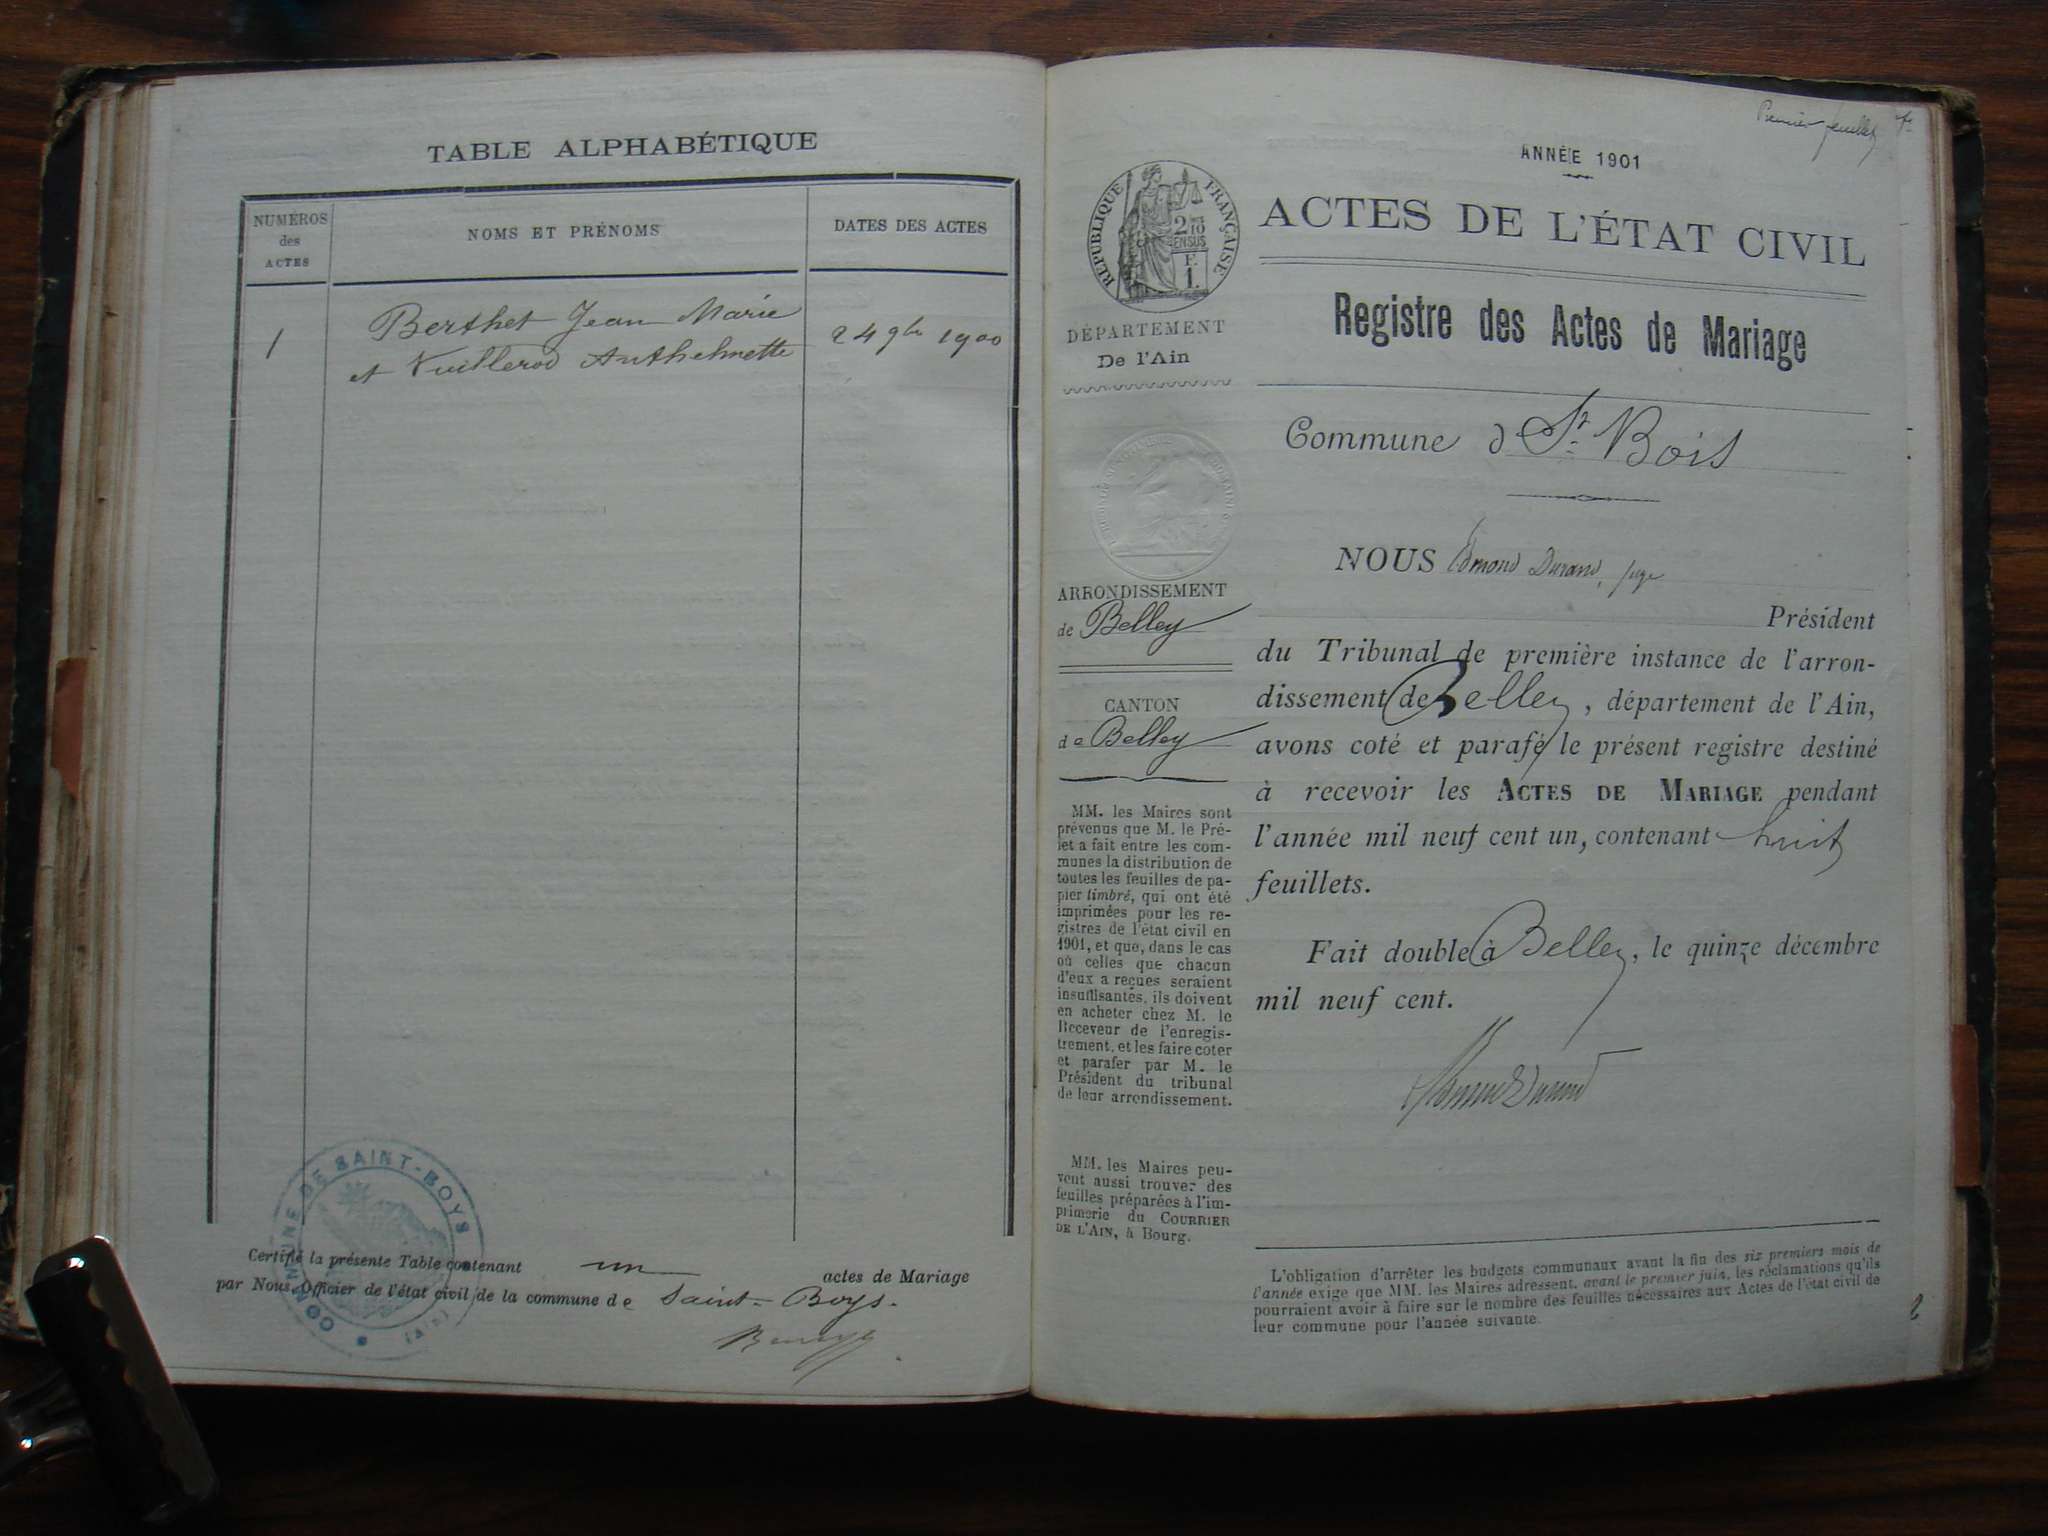 TABLE ALPHABÉTIQUE
NUMÉROS
des
ACTES
NOMS ET PRÉNOMS
DATES DES ACTES
1
Berthet Jean Marie
et Vuillerod Anthelmette
24 9bre 1900
COMMUNE DE SAINT-BOYS
(Ain)
Certifié la présente Table contenant un actes de Mariage
par Nous Officier de l'état civil de la commune de Saint-Boys.
Premier feuillet
ANNÉE 1901
RÉPUBLIQUE FRANÇAISE
2/10
EN SUS
F.
1.
ACTES DE L'ÉTAT CIVIL
Registre des Actes de Mariage
DÉPARTEMENT
De l'Ain
Commune d St Bois
NOUS Edmond Durand, juge
ARRONDISSEMENT
de Belley
CANTON
de Belley
Président
du Tribunal de première instance de l'arron-
dissement de Belley, département de l'Ain,
avons coté et parafé le présent registre destiné
à recevoir les ACTES DE MARIAGE pendant
l'année mil neuf cent un, contenant huit
feuillets.
Fait double à Belley, le quinze décembre
mil neuf cent.
Edmond Durand
MM. les Maires sont
prévenus que M. le Pré-
fet a fait entre les com-
munes la distribution de
toutes les feuilles de pa-
pier timbré, qui ont été
imprimées pour les re-
gistres de l'état civil en
1901, et que, dans le cas
où celles que chacun
d'eux a reçues seraient
insuffisantes, ils doivent
en acheter chez M. le
Receveur de l'enregis-
trement, et les faire coter
et parafer par M. le
Président du tribunal
de leur arrondissement.
MM. les Maires peu-
vent aussi trouver des
feuilles préparées à l'im-
primerie du COURRIER
DE L'AIN, à Bourg.
L'obligation d'arrêter les budgets communaux avant la fin des six premiers mois de
l'année exige que MM. les Maires adressent, avant le premier juin, les réclamations qu'ils
pourraient avoir à faire sur le nombre des feuilles nécessaires aux Actes de l'état civil de
leur commune pour l'année suivante.